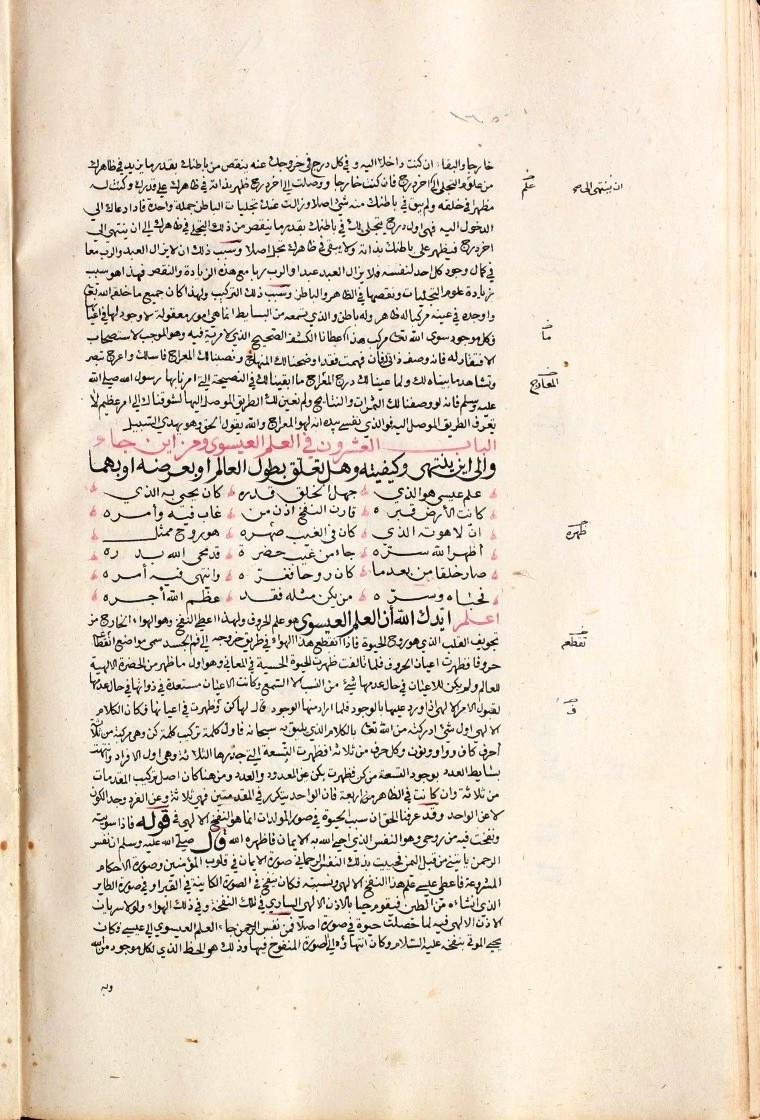 خارجا والبقاء ان كنت داخلا اليه وفي كل درج في خروجك عنه ينقص من باطنك بقدر ما يزيد في ظاهرك
من علوم التجلي الى اخر درج فان كنت خارجا ووصلت الى اخر درج ظهر بذاته في ظاهرك على قدرك وكنت له
مظهرا في خلقه ولم يبق في باطنك منه شي اصلا وزالت عنك تجليات الباطن جملة واحدة فاذا دعاك الى
الدخول اليه فهي اول درج يتجلى لك في باطنك بقدر ما ينقص من ذلك التجلي في ظاهرك الى ان ينتهي الى
اخر درج فيظهر على باطنك بذاته ولا يبقى في ظاهرك تجل اصلا وسبب ذلك ان لا يزال العبد والرب معا
في كمال وجود كل احد لنفسه فلا يزال العبد عبدا والرب ربا مع هذه الزيادة والنقص فهذا هو سبب
زيادة علوم التجليات ونقصها في الظاهر والباطن وسبب ذلك التركيب ولهذا كان جميع ما خلقه الله تعالى
واوجده في عينه مركبا له ظاهر وله باطن والذي نسمعه من البسائط انما هي امور معقولة لا وجود لها في اعيانها
فكل موجود سوى الله تعالى مركب هذا اعطانا الكشف الصحيح الذي لا مرية فيه وهو الموجب لاستصحاب
الافتقار له فانه وصف ذاتي فان فهمت فقد اوضحنا لك المنهاج ونصبنا لك المعراج فاسلك واعرج تبصر
وتشاهد ما بيناه لك ولما عينا لك درج المعارج ما ابقينا لك في النصيحة التي امرنا بها رسول الله صلى الله
عليه وسلم فانه لو وصفنا لك الثمرات والنتايج ولم نعين لك الطريق الموصل اليها لشوقناك الى امر عظيم لا
يعرف الطريق الموصل اليه فوالذي نفسي بيده انه لهو المعراج والله يقول الحق وهو يهدي السبيل
الباب العشرون في العلم العيسوي ومن اين جاء
والى اين ينتهي وكيفيته وهل تعلق بطول العالم او بعرضه او بهما
علم عيسى هو الذي جهل الخلق قدره كان يحيى به الذي
كانت الارض قبره قارن النفخ اذن من غاب فيه وامره
ان لاهوته الذي كان في الغيب صهره هو روح ممثل
اظهر الله سره جاء من غيب حضرة قد محى الله بدره
صار خلقا من بعد ما كان روحا فغره وانتهى فيه امره
فحباه وسره من يكن مثله فقد عظم الله اجره
اعلم ايدك الله ان العلم العيسوي هو علم الحروف ولهذا اعطي النفخ وهو الهواء الخارج من
تجويف القلب الذي هو روح الحيوة فاذا انقطع هذا الهواء في طريق خروجه الى فم الجسد سمي مواضع انقطاعه
حروفا فظهرت اعيان الحروف فلما تالفت ظهرت الحيوة الحسية في المعاني وهو اول ما ظهر من الحضرة الالهية
للعالم ولم يكن للاعيان في حال عدمها شي من النسب الا السمع وكانت الاعيان مستعدة في ذواتها في حال عدمها
لقبول الامر الالهي اذا ورد عليها بالوجود فلما اراد منها الوجود قال لها كن فظهرت في اعيانها فكان الكلام
الالهي اول شي ادركته من الله تعالى بالكلام الذي يليق به سبحانه فاول كلمة تركبت كلمة كن وهي مركبة من ثلاثة
احرف كاف وواو ونون وكل حرف من ثلاثة فظهرت التسعة التي جذرها الثلاثة وهي اول الافراد وانتهت
بسايط العدد بوجود التسعة من كن فظهرت بكن عين المعدود والعدد ومن هنا كان اصل تركيب المقدمات
من ثلاثة وان كانت في الظاهر من اربعة فان الواحد يتكرر في المقدمتين فهي ثلاثة وعن الفرد وجد الكون
لا عن الواحد وقد عرفنا الحق ان سبب الحيوة في صور المولدات انما هو النفخ الالهي في قوله فاذا سويته
ونفخت فيه من روحي وهو النفس الذي احيى الله به الايمان فاظهره الله قال صلى الله عليه وسلم ان نفس
الرحمن ياتيني من قبل اليمن فحييت بذلك النفس الرحماني صورة الايمان في قلوب المؤمنين وصورة الاحكام
المشروعة فاعطى عيسى علم هذا النفخ الالهي ونسبته فكان ينفخ في الصورة الكاينة في القبر او في صورة الطاير
الذي انشاءه من الطين فيقوم حيا بالاذن الالهي الساري في تلك النفخة وفي ذلك الهواء ولولا سريان
الاذن الالهي فيه لما حصلت حيوة في صورة اصلا فمن نفس الرحمن جاء العلم العيسوي الى عيسى فكان
يحيي الموتى بنفخه عليه السلام وكان انتهاؤه الى الصورة المنفوخ فيها وذلك هو الحظ الذي لكل موجود من الله
وبه
ان ينتهي الى
علم
ما
المعارج
ظهره
تقطعه